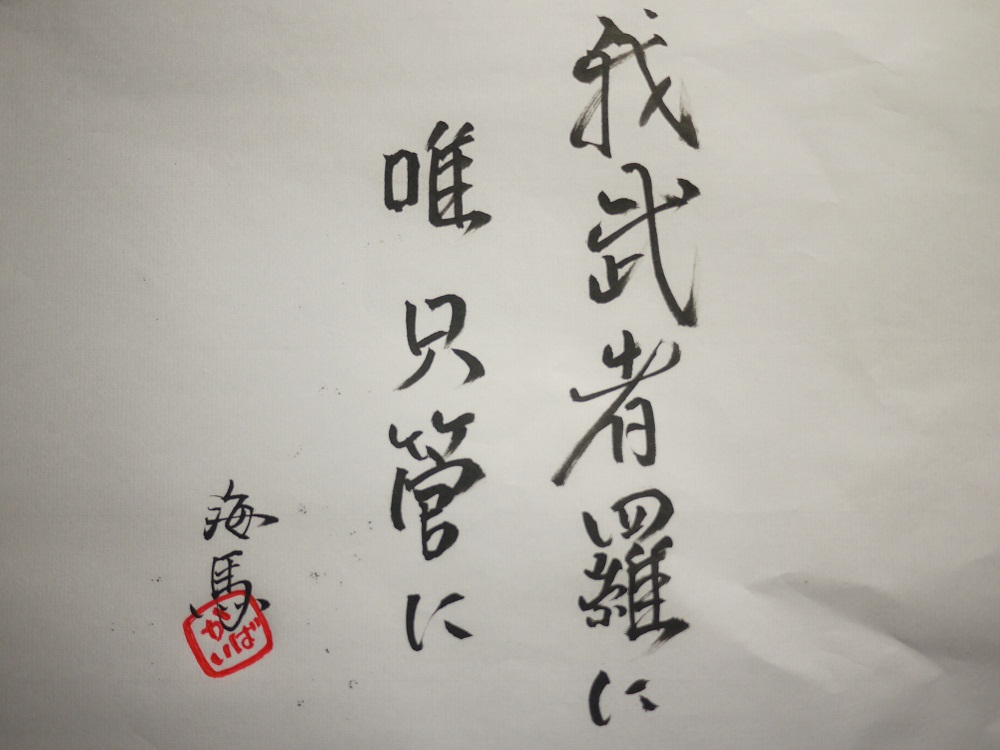 我武者羅に
唯只管に
海馬
がいば